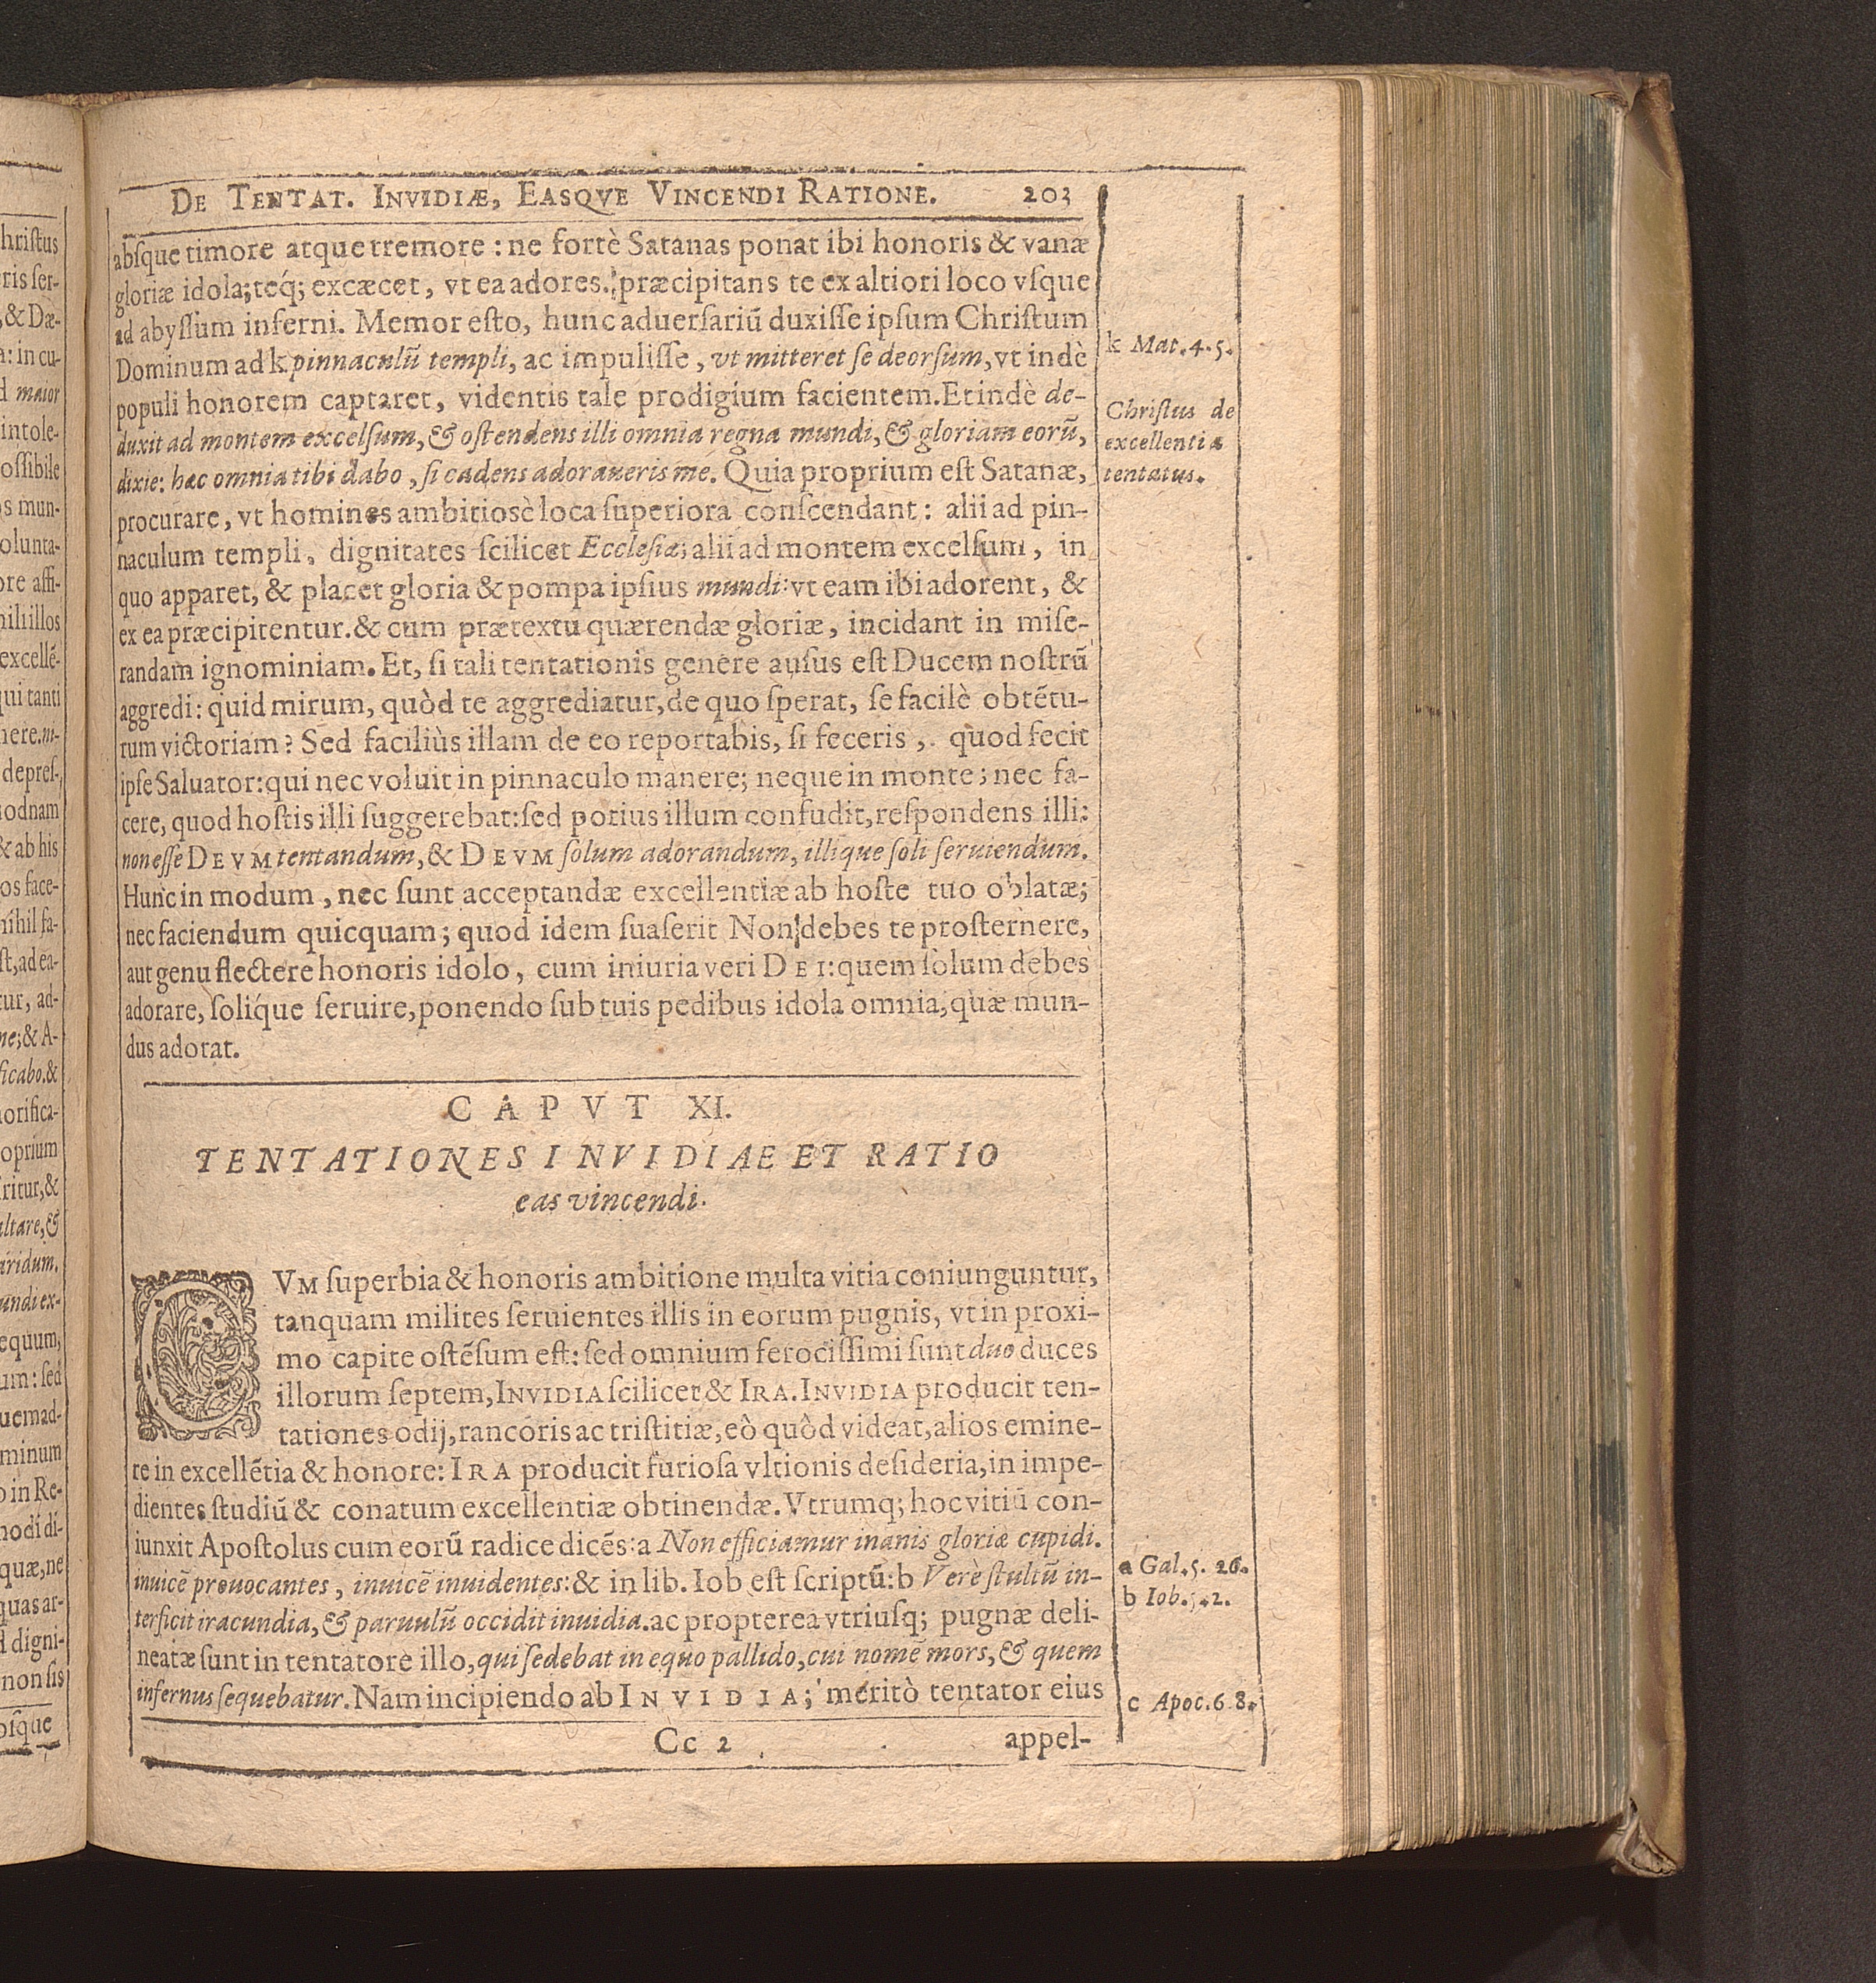 DE TENTAT. INVIDIÆ, EASQVE VINCENDI RATIONE. 203
abſque timore atque tremore : ne fortè Satanas ponat ibi honoris & vanæ
gloriæ idola; teq́; excæcet, vt ea adores. præcipitans te ex altiori loco vſque
ad abyſſum inferni. Memor eſto, hunc aduerſariũ duxiſſe ipſum Chriſtum
Dominum ad k pinnaculũ templi, ac impuliſſe, vt mitteret ſe deorſum, vt indè
populi honorem captaret, videntis tale prodigium facientem. Et indè de-
duxit ad montem excelſum, & oſtendens illi omnia regna mundi, & gloriam eorũ,
dixie: hæc omnia tibi dabo, ſi cadens adoraueris me. Quia proprium eſt Satanæ,
procurare, vt homines ambitiosè loca ſuperiora conſcendant: alii ad pin-
naculum templi, dignitates ſcilicet Eccleſiæ; alii ad montem excelſum, in
quo apparet, & placet gloria & pompa ipſius mundi: vt eam ibi adorent, &
ex ea præcipitentur. & cum prætextu quærendæ gloriæ, incidant in miſe-
randam ignominiam. Et, ſi tali tentationis genere auſus eſt Ducem noſtrũ
aggredi: quid mirum, quòd te aggrediatur, de quo ſperat, ſe facilè obtẽtu-
rum victoriam? Sed faciliùs illam de eo reportabis, ſi feceris, quod fecit
ipſe Saluator: qui nec voluit in pinnaculo manere; neque in monte; nec fa-
cere, quod hoſtis illi ſuggerebat: ſed potius illum confudit, reſpondens illi:
non eſſe DEVM tentandum, & DEVM ſolum adorandum, illique ſoli ſeruiendum.
Hunc in modum, nec ſunt acceptandæ excellentiæ ab hoſte tuo oblatæ;
nec faciendum quicquam; quod idem ſuaſerit Non debes te proſternere,
aut genu flectere honoris idolo, cum iniuria veri DEI: quem ſolum debes
adorare, ſolíque ſeruire, ponendo ſub tuis pedibus idola omnia, quæ mun-
dus adorat.
k Mat. 4. 5.
Chriſtus de
excellentia
tentatus.
CAPVT XI.
TENTATIONES INVIDIAE ET RATIO
eas vincendi.
CVM ſuperbia & honoris ambitione multa vitia coniunguntur,
tanquam milites ſeruientes illis in eorum pugnis, vt in proxi-
mo capite oſtẽſum eſt: ſed omnium ferociſſimi ſunt duo duces
illorum ſeptem, INVIDIA ſcilicet & IRA. INVIDIA producit ten-
tationes odij, rancoris ac triſtitiæ, eò quòd videat, alios emine-
re in excellẽtia & honore: IRA producit furioſa vltionis deſideria, in impe-
dientes ſtudiũ & conatum excellentiæ obtinendæ. Vtrumq; hoc vitiũ con-
iunxit Apoſtolus cum eorũ radice dicẽs: a Non efficiamur inanis gloriæ cupidi.
inuicẽ prouocantes, inuicẽ inuidentes: & in lib. Iob eſt ſcriptũ: b Verè ſtultũ in-
terficit iracundia, & paruulũ occidit inuidia. ac propterea vtriuſq; pugnæ deli-
neatæ ſunt in tentatore illo, qui ſedebat in equo pallido, cui nomẽ mors, & quem
infernus ſequebatur. Nam incipiendo ab INVIDIA; meritò tentator eius
a Gal. 5. 26.
b Iob. 5. 2.
c Apoc. 6 8.
Cc 2 appel-